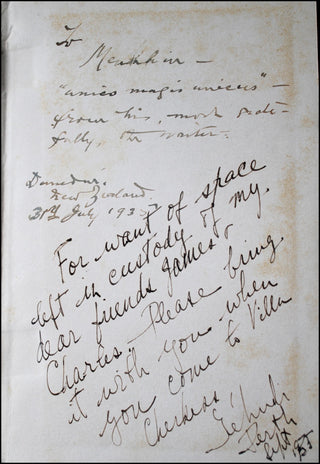 To
Menuhin –
"amico magis amicus" –
from his, most grate-
fully, the writer.
Dunedin,
New Zealand.
31st July 1935
For want of space
left in custody of my
dear friends James,
Charles. Please bring
it with you when
you come to Villa
Cherkess
Yehudi
Perth
Sept 1935